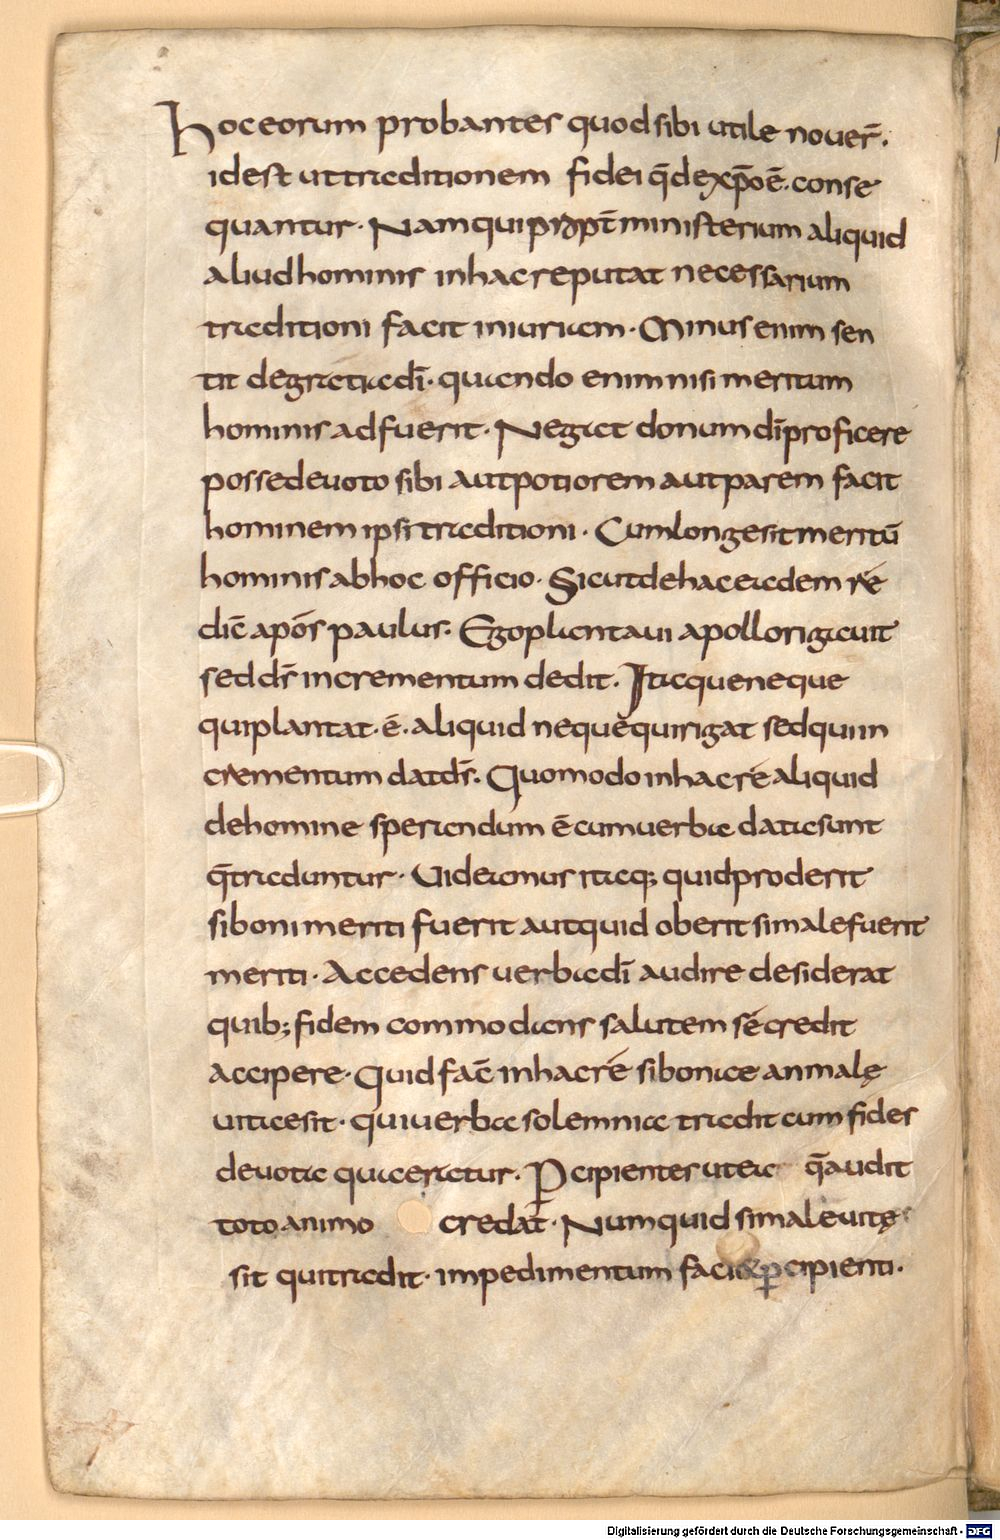 Hoc eorum probantes quod sibi utile nouer̄.
id est ut traditionem fidei q̄ de xp̄o ē. conse
quantur. Nam qui propt̄ ministerium aliquid
aliud hominis in hac reputat necessarium
traditioni facit iniuriam. Minus enim sen
tit de gratia dī. quando enim nisi meritum
hominis adfuerit. Negat donum dī proficere
posse deuoto sibi aut potiorem aut parem facit
hominem ipsi traditioni. Cum longe sit meritū
hominis ab hoc officio. Sicut de hac eadem re
dic̄ apos̄ paulus. Ego plantaui apollo rigauit
sed ds̄ incrementum dedit. Itaque neque
qui plantat. ē. aliquid neque qui rigat sed qui in
crementum dat ds̄. Quomodo in hac re aliquid
de homine sperandum ē cum uerba data sunt
q̄ traduntur. Uideamus itaq; quid proderit
si boni meriti fuerit aut quid oberit si male fuerit
meriti. Accedens uerba dī audire desiderat
quib; fidem commodans salutem se credit
accipere. Quid fac̄ in hac re si bonae an malę
uitae sit. qui uerba solemnia tradit cum fides
deuota quaeratur. P̄cipientes utea q̄ audit
toto animo credat. Numquid si male uitę
sit qui tradit. impedimentum faci& p̄cipienti.
Digitalisierung gefördert durch die Deutsche Forschungsgemeinschaft - DFG